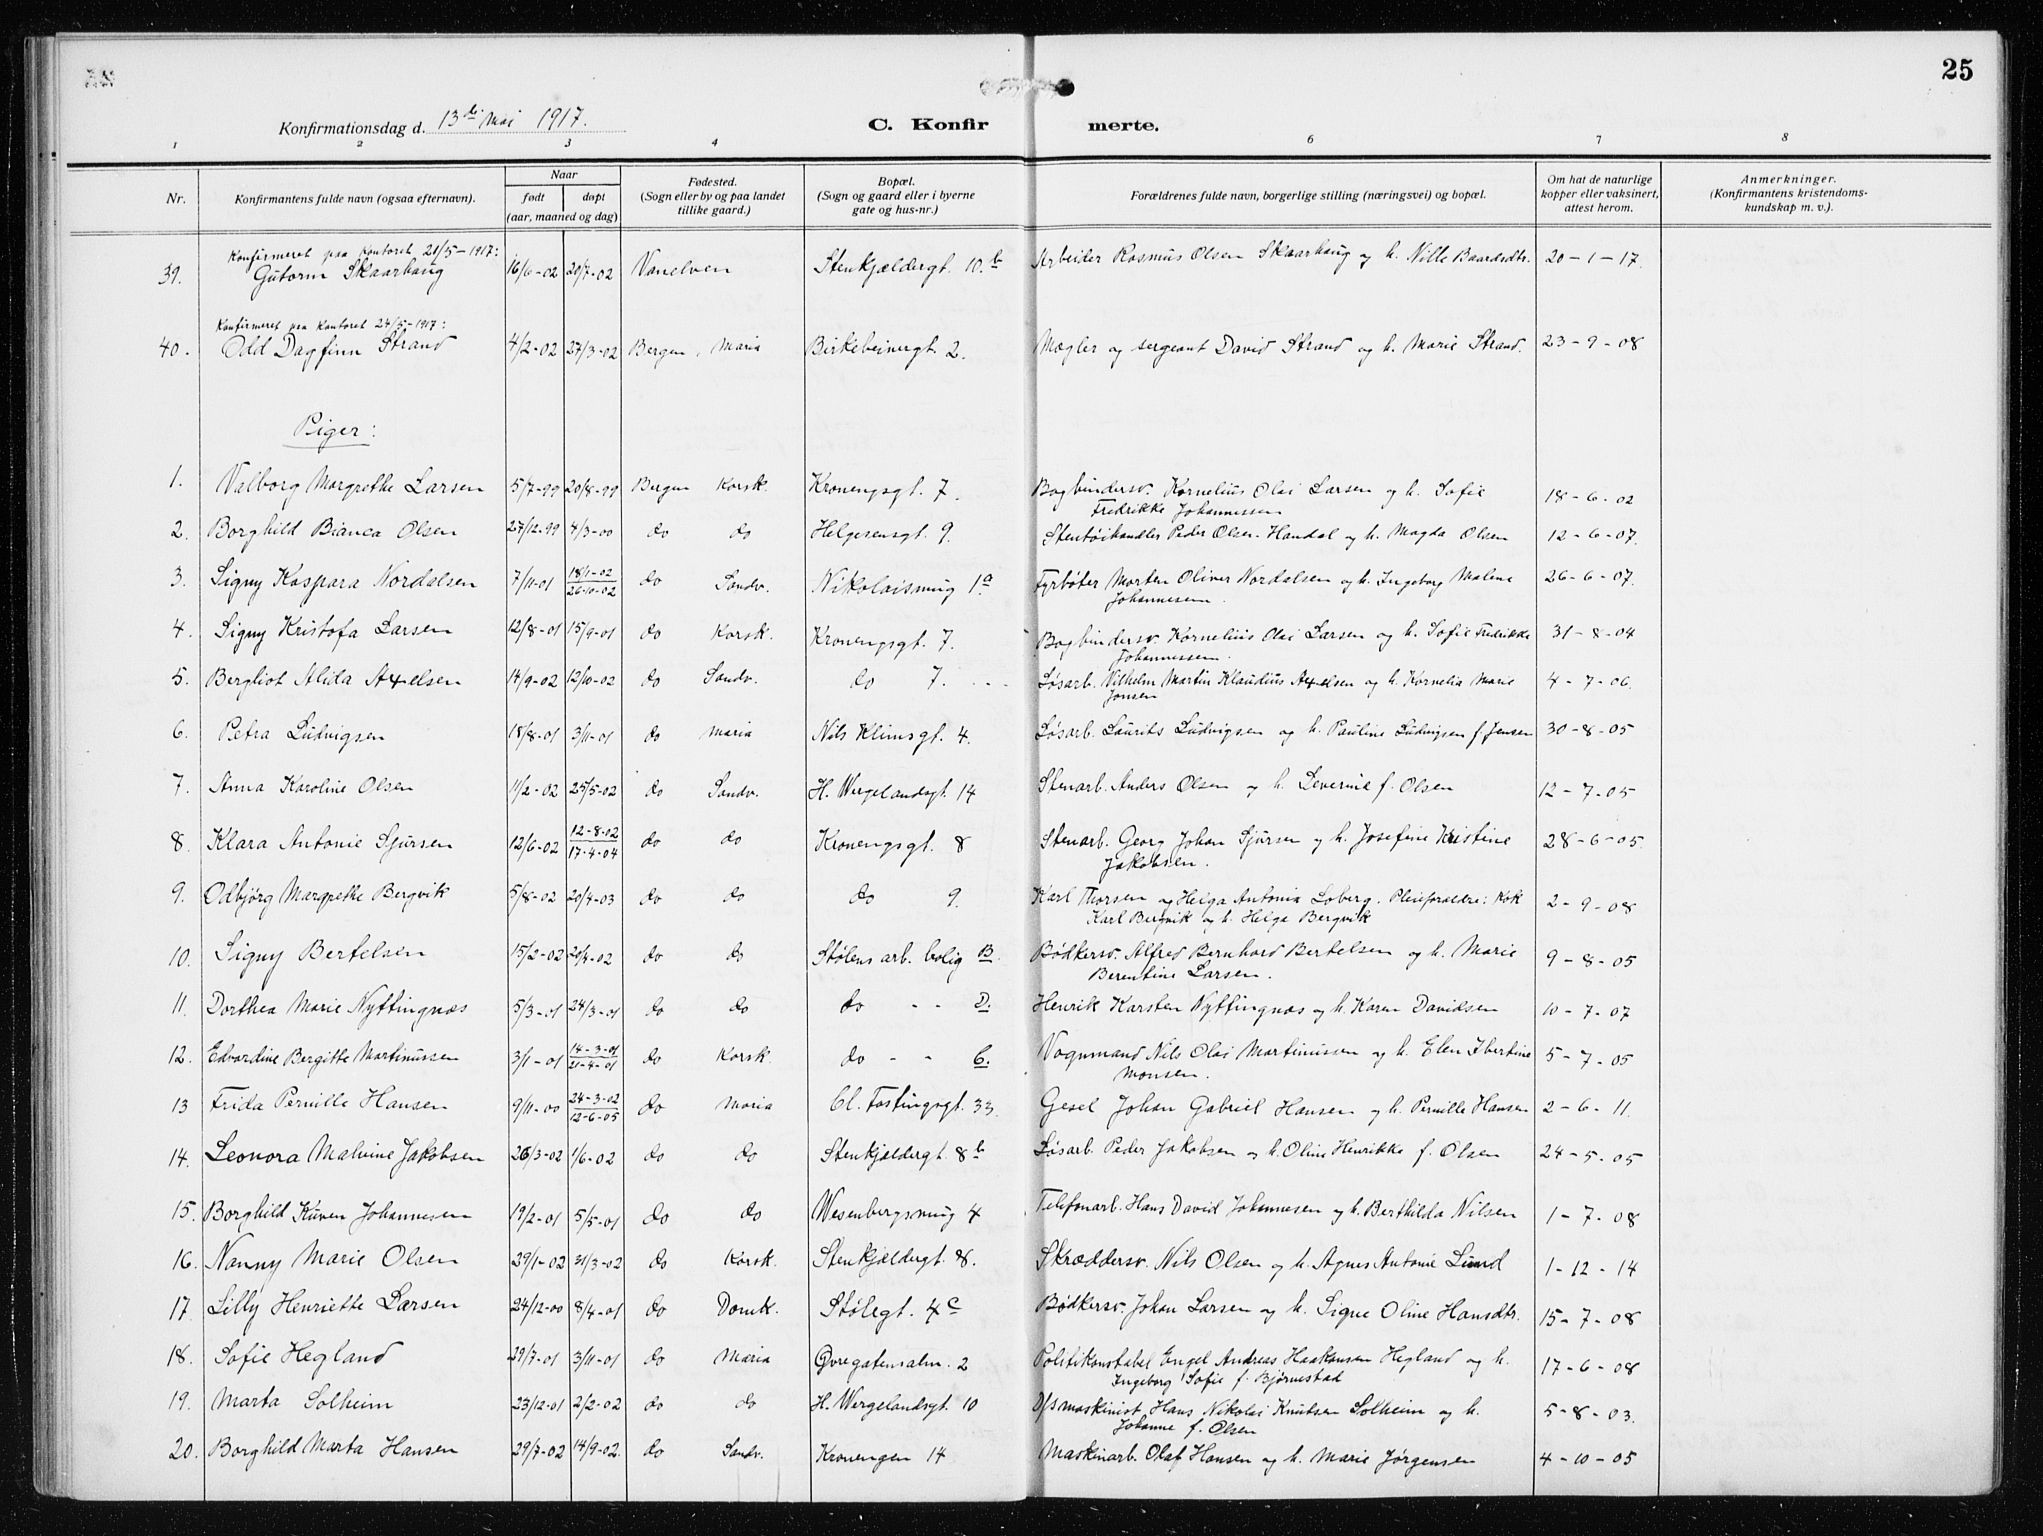 25
Konfirmationsdag d. 13de Mai 1917.
C. Konfir merte.
1 2 3 4 5 6 7 8
Nr. Konfirmantens fulde navn (ogsaa efternavn). Naar født døpt (aar, maaned og dag) Fødested. (Sogn eller by og paa landet tillike gaard.) Bopæl. (Sogn og gaard eller i byerne gate og hus-nr.) Forældrenes fulde navn, borgerlige stilling (næringsvei) og bopæl. Om hat de naturlige kopper eller vaksinert, attest herom. Anmerkninger. (Konfirmantens kristendoms-kundskap m. v.).
Konfirmeret paa Kontoret 21/5-1917:
39. Gutorm Skaarhaug 16/6-02 20/7-02 Vanelven Stenkjældergt. 10.b Arbeider Rasmus Olsen Skaarhaug og h. Nille Baardsdtr. 20-1-17.
Konfirmeret paa Kontoret 24/5-1917:
40. Odd Dagfinn Strand 4/2-02 27/3-02 Bergen, Maria Birkebeinergt. 2. Mægler og sergeant David Strand og h. Marie Strand. 23-9-08
Piger:
1. Valborg Margrethe Larsen 5/7-99 20/8-99 Bergen Korsk. Kronengsgt. 7. Bogbindersv. Kornelius Olai Larsen og h. Sofie 18-6-02
Fredrikke Johannessen
2. Borghild Bianca Olsen 27/12-99 4/3-00 do do Helgesensgt. 9. Stentøihandler Peder Olsen-Handal og h. Magda Olsen 12-6-07.
3. Signy Kaspara Nordalsen 7/11-01 18/1-02 26-10-02 do Sandv. Nikolaismug 1a Fyrbøter Morten Oliver Nordalsen og h. Ingeborg Malene 26-6-07.
Johannesen.
4. Signy Kristofa Larsen 12/8-01 15/9-01 do Korsk. Kronengsgt. 7. Bogbindersv. Kornelius Olai Larsen og h. Sofie Fredrikke 31-8-04
Johannessen.
5. Bergliot Alida Axelsen 14/9-02 12/10-02 do Sandv. do 7. Løsarb. Vilhelm Martin Klaudius Axelsen og h. Kornelia Marie 4-7-06.
Jonsen
6. Petra Ludvigsen 18/8-01 3/11-01 do Maria Nils Klimsgt. 4. Løsarb. Laurits Ludvigsen og h. Pauline Ludvigsen f. Jensen 30-8-05
7. Anna Karoline Olsen 11/2-02 25/5-02 do Sandv. H. Wergelandsgt. 14 Stenarb. Anders Olsen og h. Severine f. Olsen 12-7-05
8. Klara Antonie Sjursen 12/6-02 12-8-02 17-4-04 do do Kronengsgt. 8 Stenarb. Georg Johan Sjursen og h. Josefine Kristine 28-6-05
Jakobsen.
9. Odbjørg Margrethe Bergvik 5/8-02 20/4-03 do do do 9. Karl Thorsen og Helga Antonia Loberg. Pleieforældre: Kok 2-9-08
Karl Bergvik og h. Helga Bergvik
10. Signy Bertelsen 15/2-02 20/4-02 do do Stølens arb. bolig B. Bødkersv. Alfred Bernhard Bertelsen og h. Marie 9-8-05
Berentine Larsen.
11. Dorthea Marie Nyttingnæs 5/3-01 24/3-01 do do do - - D. Henrik Karsten Nyttingnæs og h. Karen Davidsen 10-7-07
12. Edvardine Bergitte Martinussen 3/11-01 14-3-01 21-4-01 do Korsk. do - - C. Vognmand Nils Olai Martinussen og h. Elen Ibertine 5-7-05
Monsen.
13 Frida Pernille Hansen 9/11-00 24-3-02 12-6-05 do Maria Cl. Fastingsgt. 33. Gesel Johan Gabriel Hansen og h. Pernille Hansen 2-6-11.
14. Leonora Malvine Jakobsen 26/3-02 1/6-02 do do Stenkjældergt. 8b Løsarb. Peder Jakobsen og h. Oline Henrikke f. Olsen 24-5-05
15. Borghild Kuven Johannesen 19/2-01 5/5-01 do do Wesenbergsmug 4 Telefonarb. Hans David Johannesen og h. Berthilda Nilsen 1-7-08
16. Nanny Marie Olsen 29/1-02 31/3-02 do Korsk. Stenkjældergt. 8. Skræddersv. Nils Olsen og h. Agnes Antonie Lund 1-12-14
17. Lilly Henriette Larsen 24/12-00 8/4-01 do Domk. Stølegt. 4c Bødkersv. Johan Larsen og h. Signe Oline Hansdtr. 15-7-08
18. Sofie Hegland 29/7-01 3/11-01 do Maria Øvregatensalm. 2 Politikonstabel Engel Andreas Haakonsen Hegland og h. 17-6-08
Ingeborg Sofie f. Bjørnestad
19. Marta Solheim 23/12-01 2/2-02 do do H. Wergelandsgt. 10 D/s maskinist Hans Nikolai Knutsen Solheim og h. 5-8-03.
Johanne f. Olsen
20. Borghild Marta Hansen 29/7-02 14/9-02. do Sandv. Kronengen 14 Maskinarb. Olaf Hansen og h. Marie Jørgensen 4-10-05